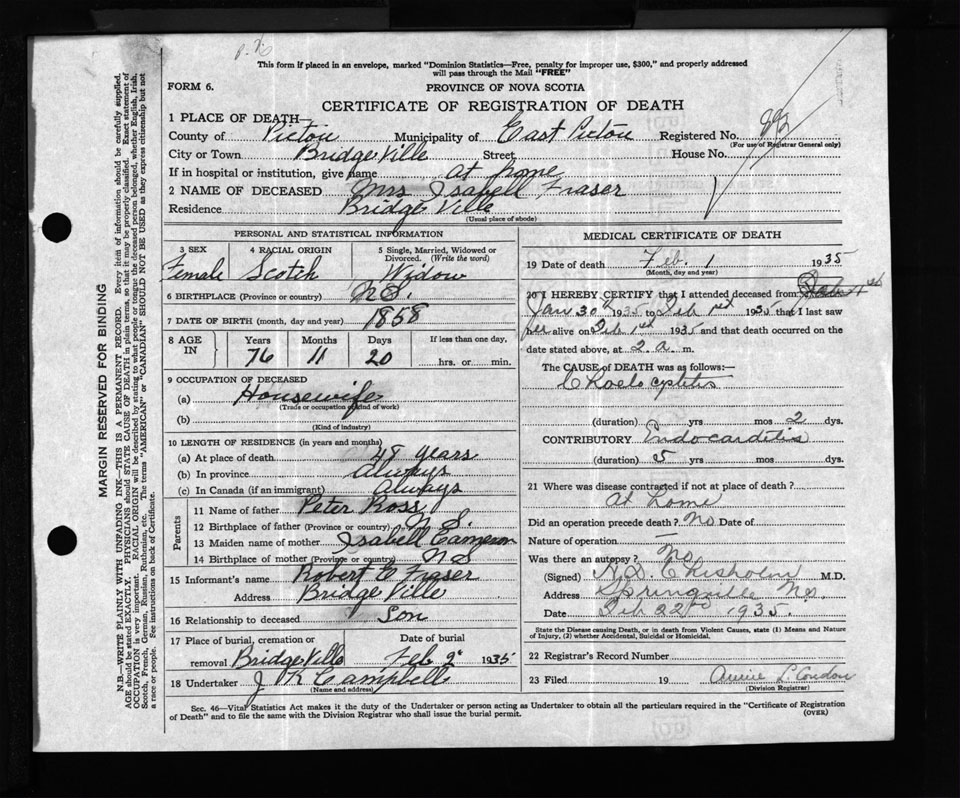 This form if placed in an envelope, marked "Dominion Statistics—Free, penalty for improper use, $300," and properly addressed
will pass through the Mail "FREE"
FORM 6.
PROVINCE OF NOVA SCOTIA
CERTIFICATE OF REGISTRATION OF DEATH
1 PLACE OF DEATH—
County of Pictou Municipality of East Pictou Registered No.
(For use of Registrar General only)
City or Town Bridgeville Street House No.
If in hospital or institution, give name at home
2 NAME OF DECEASED Mrs Isabell Fraser
Residence Bridgeville
(Usual place of abode)
PERSONAL AND STATISTICAL INFORMATION
3 SEX Female
4 RACIAL ORIGIN Scotch
5 Single, Married, Widowed or Divorced. (Write the word) Widow
6 BIRTHPLACE (Province or country) N.S.
7 DATE OF BIRTH (month, day and year) 1858
8 AGE IN Years Months Days If less than one day,
76 11 20 hrs. or min.
9 OCCUPATION OF DECEASED
(a) Housewife
(Trade or occupation or kind of work)
(b)
(Kind of industry)
10 LENGTH OF RESIDENCE (in years and months)
(a) At place of death 48 years
(b) In province always
(c) In Canada (if an immigrant) always
Parents
11 Name of father Peter Ross
12 Birthplace of father (Province or country) N.S.
13 Maiden name of mother Isabell Cameron
14 Birthplace of mother (Province or country) N S
15 Informant's name Robert Fraser
Address Bridgeville
16 Relationship to deceased Son
17 Place of burial, cremation or removal Bridgeville
Date of burial Feb 1935
18 Undertaker J K Campbell
(Name and address)
MEDICAL CERTIFICATE OF DEATH
19 Date of death Feb. 1 1935
(Month, day and year)
20 I HEREBY CERTIFY that I attended deceased from
Jan 30th 1935 to Feb 1st 1935 that I last saw
her alive on Feb 1st 1935 and that death occurred on
date stated above, at 2. a. m.
The CAUSE OF DEATH was as follows:—
(duration) yrs mos 2 dys.
CONTRIBUTORY Endocarditis
(duration) 5 yrs mos dys.
21 Where was disease contracted if not at place of death?
At home
Did an operation precede death? No Date of
Nature of operation —
Was there an autopsy? No
(Signed) Chisholm M.D.
Address Springville N.S.
Date Feb 22nd 1935.
State the Disease causing Death, or in death from Violent Causes, state (1) Means and Nature
of Injury, (2) whether Accidental, Suicidal or Homicidal.
22 Registrar's Record Number
23 Filed 19 Annie L. Condon
(Division Registrar)
Sec. 46—Vital Statistics Act makes it the duty of the Undertaker or person acting as Undertaker to obtain all the particulars required in the "Certificate of Registration
of Death" and to file the same with the Division Registrar who shall issue the burial permit.
(OVER)
MARGIN RESERVED FOR BINDING
N.B.—WRITE PLAINLY WITH UNFADING INK—THIS IS A PERMANENT RECORD. Every item of information should be carefully supplied.
AGE should be stated EXACTLY. PHYSICIANS should STATE CAUSE OF DEATH in plain terms, so that it may be properly classified. Exact statement of
OCCUPATION is very important. RACIAL ORIGIN will be described by stating to what people or tongue the deceased person belonged, whether English, Irish,
Scotch, French, German, Russian, Ruthenian, etc. The terms "AMERICAN" or "CANADIAN" SHOULD NOT BE USED as they express citizenship but not
a race or people. See instructions on back of Certificate.